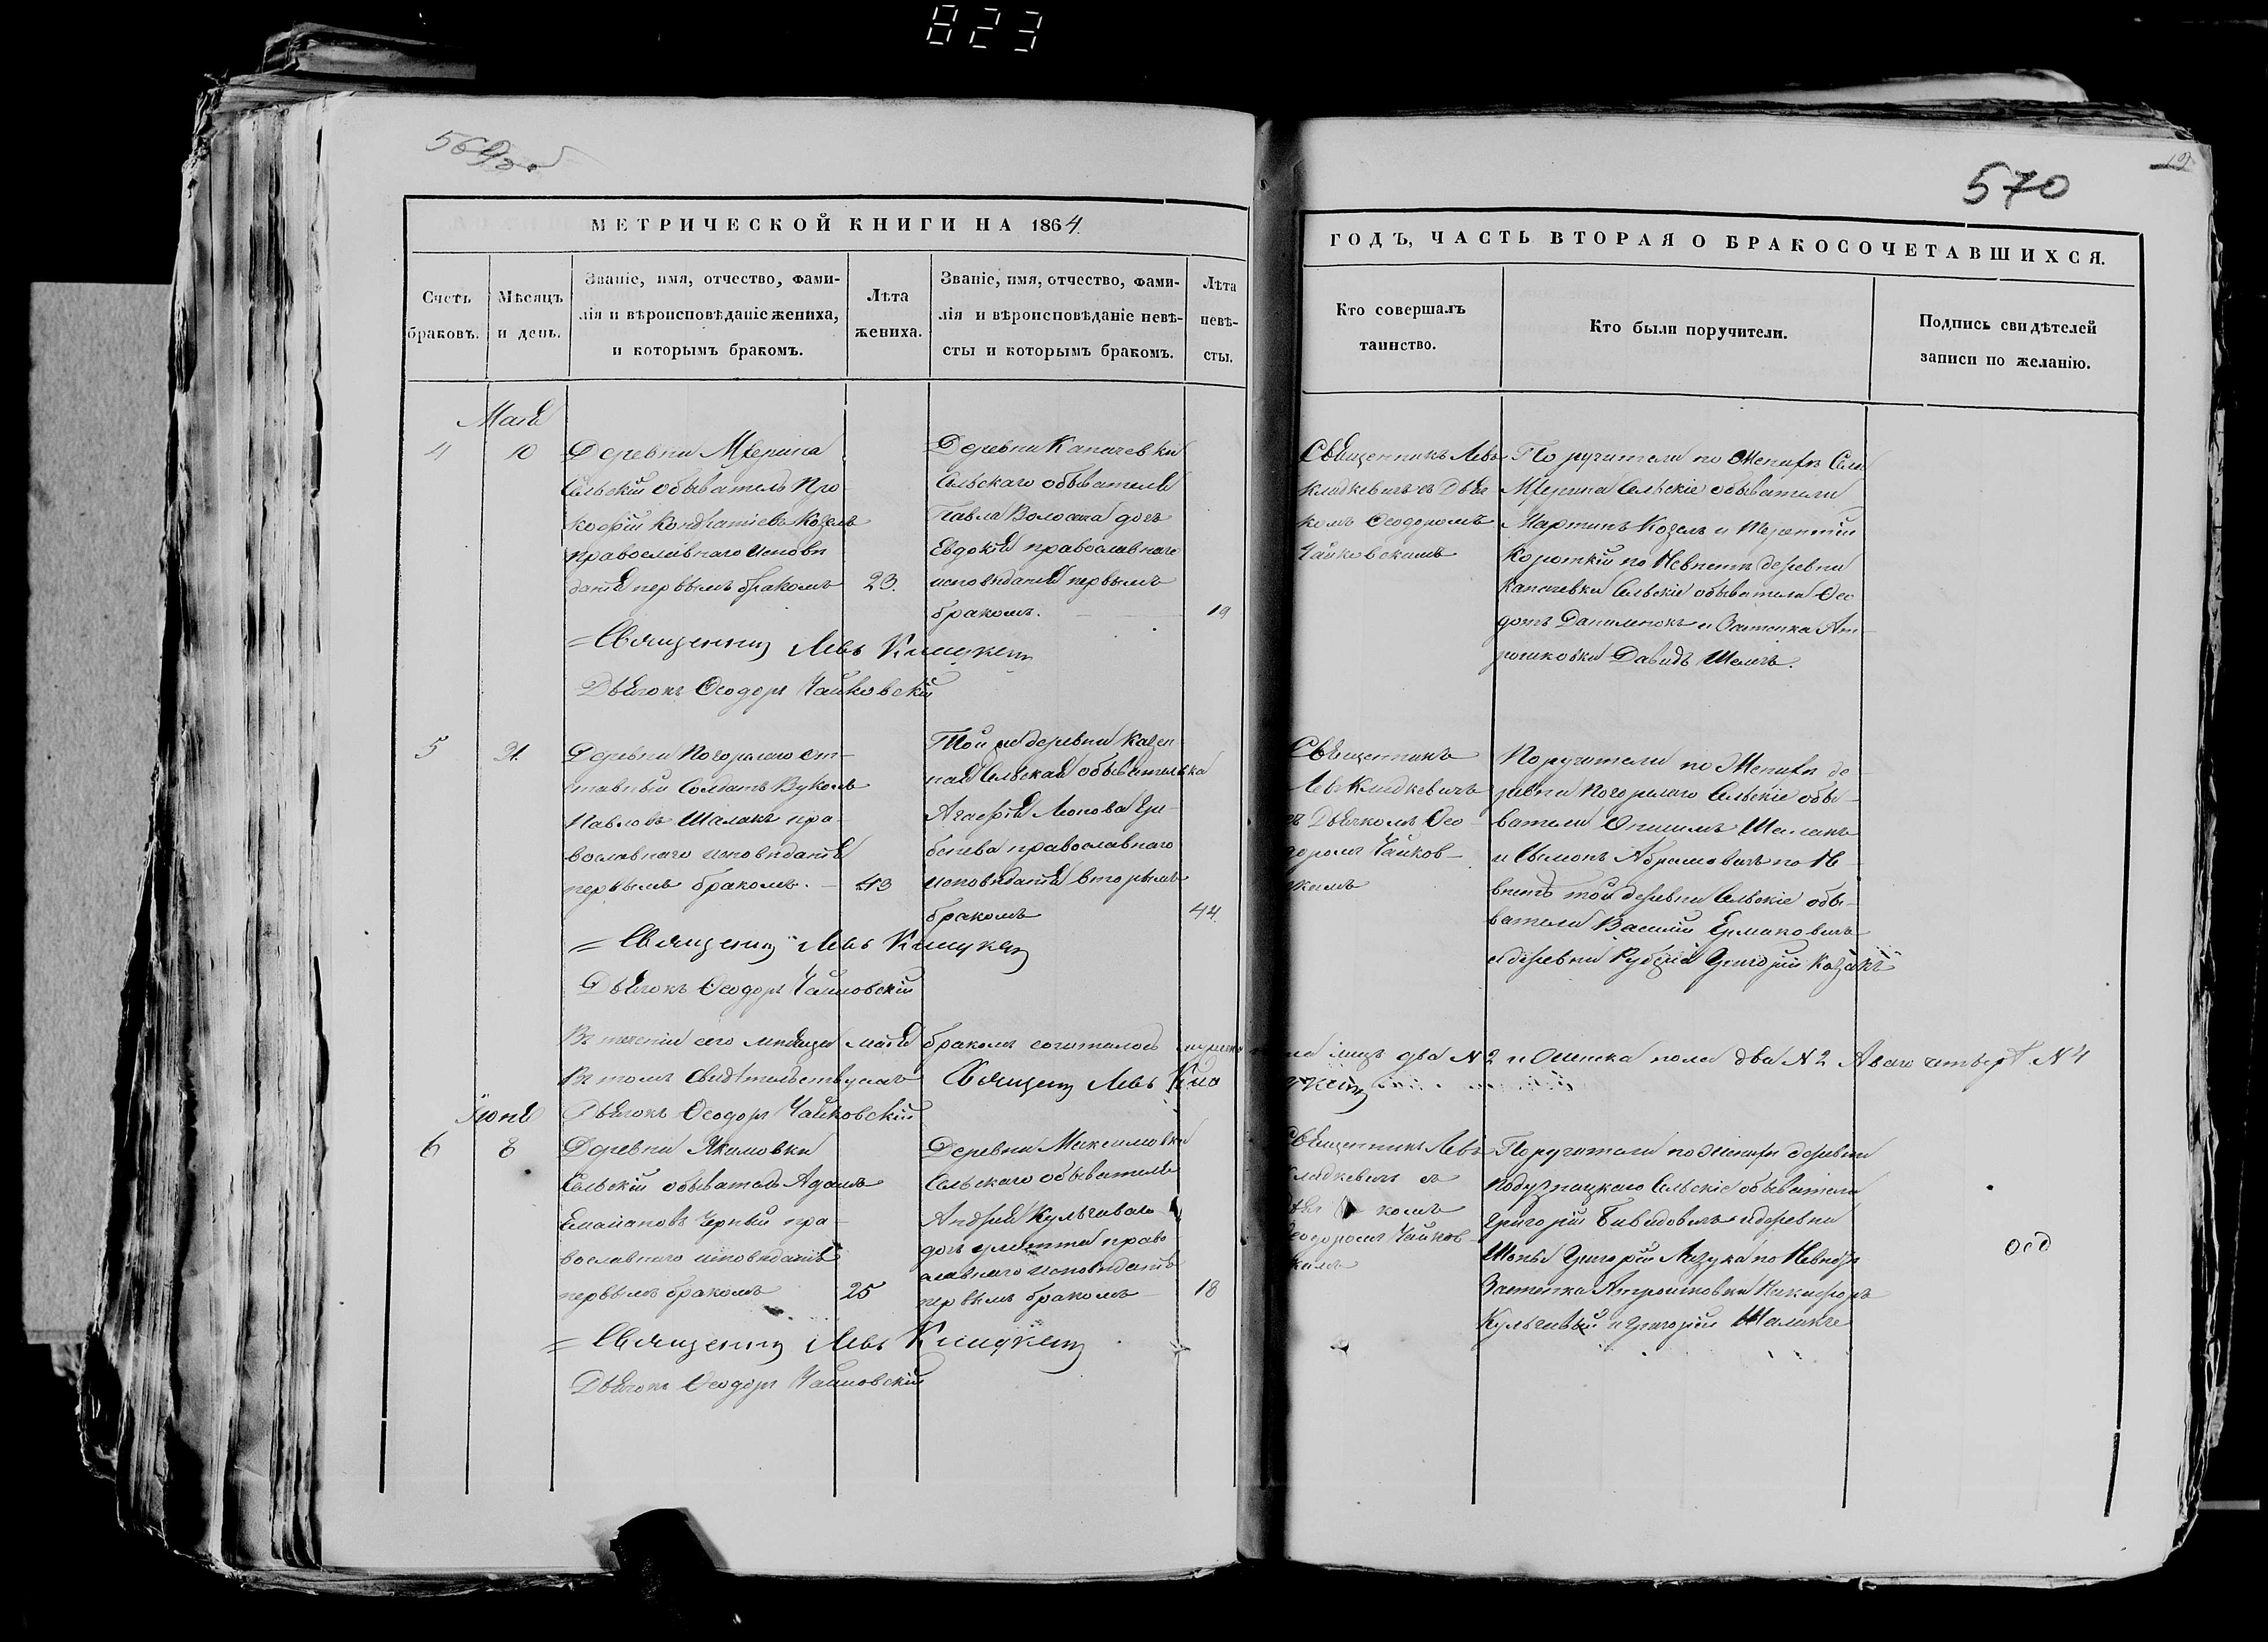 823
570
МЕТРИЧЕСКОЙ КНИГИ НА 1864.
ГОДЪ, ЧАСТЬ ВТОРАЯ О БРАКОСОЧЕТАВШИХСЯ.
Счетъ
браковъ.
Мѣсяцъ
и день.
Званіе, имя, отчество, фами-
лія и вѣроисповѣданіе жениха,
и которымъ бракомъ.
Лѣта
жениха.
Званіе, имя, отчество, фами-
лія и вѣроисповѣданіе невѣ-
сты и которымъ бракомъ.
Лѣта
невѣ-
сты.
Кто совершалъ
таинство.
Кто были поручители.
Подпись свидѣтелей
записи по желанію.
Мая
4
10
Деревни
Сельскій обыватель Про-
кофій Кондратіевъ Козелъ
православнаго исповѣ
данія первымъ бракомъ
23.
Деревни Капачевки
Сельскаго обывателя
Павла Волосача дочь
Евдокія православнаго
исповѣданія первымъ
бракомъ.
19
Священникъ Левъ
съ Дьяч
комъ Ѳеодоромъ
Чайковскимъ
Поручители по Женихѣ Села
Сельскіе обыватели
Мартинъ Козелъ и Терентій
Короткій по Невѣстѣ деревни
Капачевки Сельскіе обыватели Ѳео
дотъ Данилюкъ и Застенка Ан-
трошковки Давидъ
Священникъ Левъ
Дьячокъ Ѳеодоръ Чайковскій
5
31.
Деревни Погорѣлаго от-
ставный Солдатъ Вуколъ
Павловъ Шаланъ пра-
вославнаго исповѣданія
первымъ бракомъ.
43
Той же деревни Казен
ная Сельская обывателька
Агафія Леонова Гре-
бенева православнаго
исповѣданія вторымъ
бракомъ
44.
Священникъ
Левъ
съ Дьячкомъ Ѳео-
доромъ Чайков-
скимъ
Поручители по Женихѣ де-
ревни Погорѣлаго Сельскіе обы-
ватели Онисимъ Шаланъ
и Сымонъ Абрамовичъ по Не-
вѣстѣ той деревни Сельскіе обы-
ватели Василій Ермаковичъ
и деревни Григорій Козакъ
Священникъ Левъ
Дьячокъ Ѳеодоръ Чайковскій
Въ теченіи сего мѣсяца мая бракомъ сочеталось мужеска
пола лицъ два N 2 и женска пола два N 2 А всего четыре N 4
Въ томъ свидѣтельствуемъ Священникъ Левъ
Дьячокъ Ѳеодоръ Чайковскій
Іюня
6
8
Деревни Якимовки
Сельскій обыватель Адамъ
Емаліановъ Черный пра-
вославнаго исповѣданія
первымъ бракомъ
25
Деревни Максимовки
Сельскаго обывателя
Андрея Кульгаваго
дочь право
славнаго исповѣданія
первымъ бракомъ
18
Священникъ Левъ
съ
Дьячкомъ
Ѳеодоромъ Чайков-
скимъ
Поручители по Женихѣ деревни
Сельскіе обыватели
Григорій и деревни
Григорій Мазука по Невѣстѣ
Застенка Антрошковки Никифоръ
Кульгавый и Григорій
Священникъ Левъ
Дьячокъ Ѳеодоръ Чайковскій